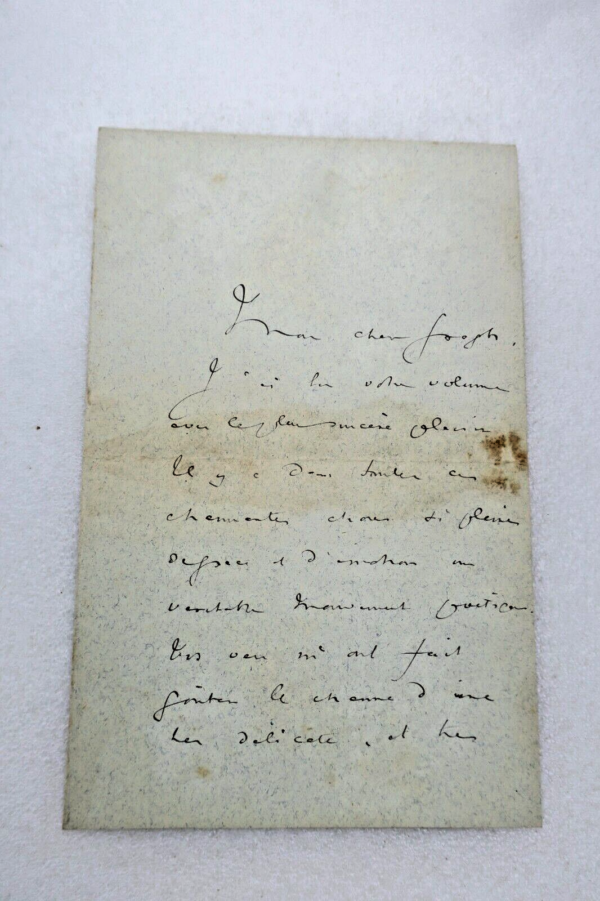 Mon cher Gregh,
J'ai lu votre volume
avec le plus sincère plaisir
Il y a dans toutes ces
charmantes choses si pleines
de grâce et d'émotion un
véritable mouvement poétique.
Vos vers m'ont fait
goûter le charme d'une
très délicate, et très